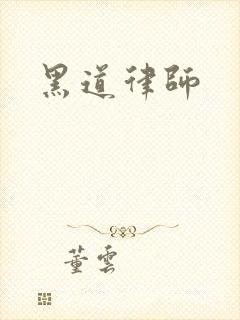 黑道律師
董雲